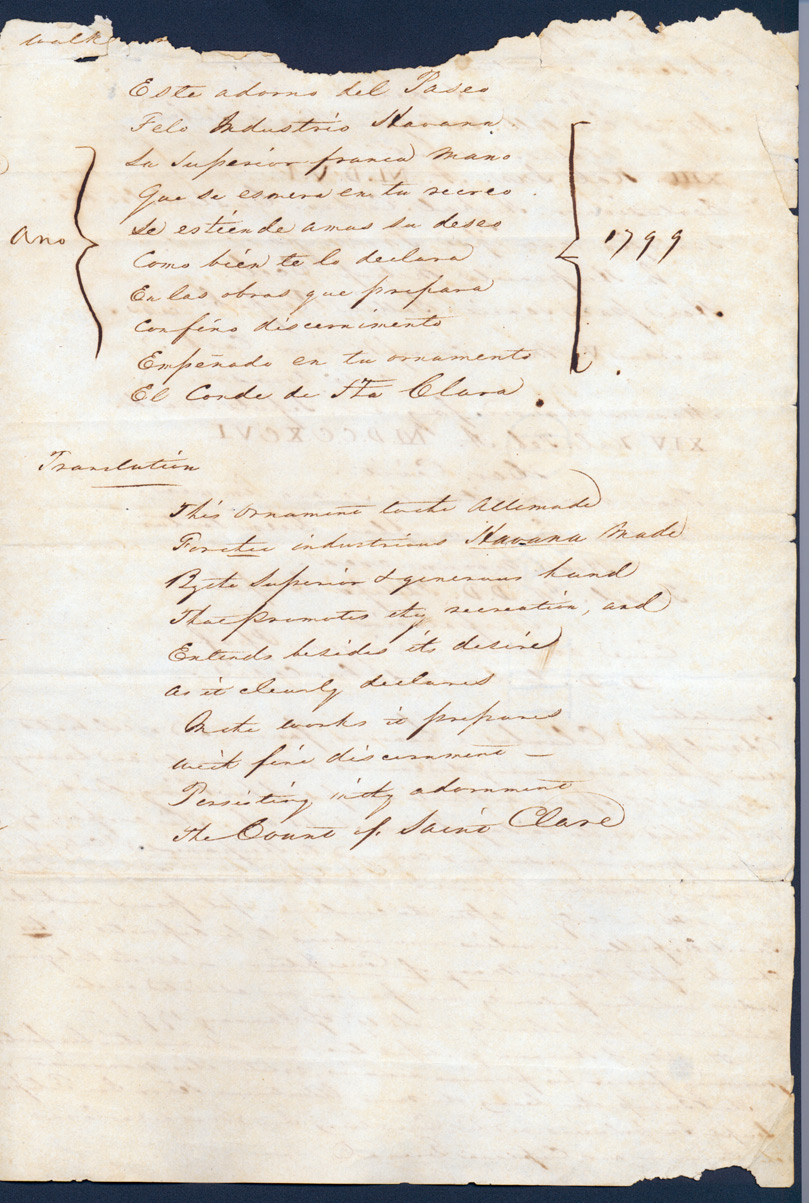 walk
Este adorno del Paseo
Felo Industrio Havana
La Superior franca mano
Que se esmera en tu recreo
Se estiende amas su deseo
Como bién te lo declara
En las obras que prepara
Con fino discernimento
Empeñado en tu ornamento
El Conde de Sta Clara
Ano
1799
Translation
This Ornament to the Allemade
For thee industrious Havana Made
By the Superior & generous hand
That promotes thy recreation, and
Extends besides its desire
As it clearly declares
In the works it prepares
With fine discernment —
Persisting in thy adornment
The Count of Saint Clare